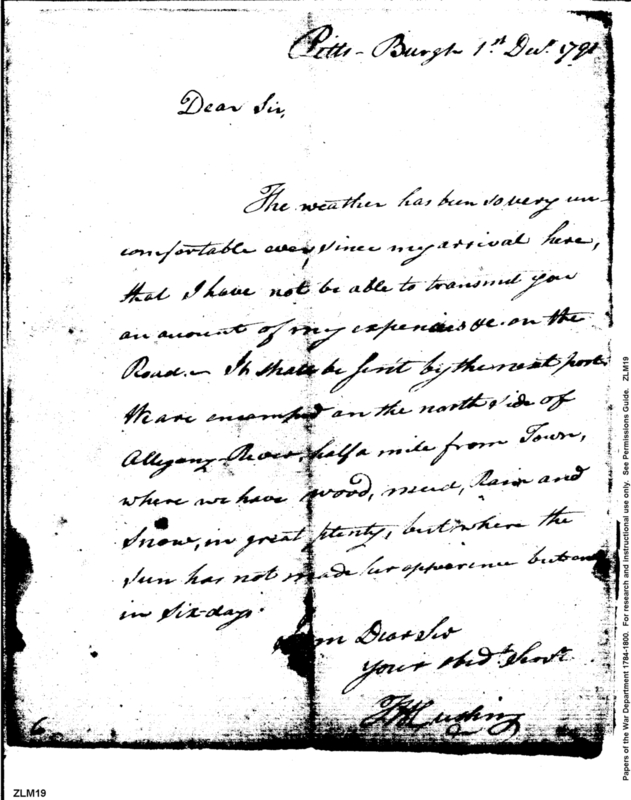 Pitts-Burgh 1st Decr. 1791
Dear Sir,
The weather has been so very un-
comfortable ever, since my arrival here,
that I have not be able to transmit you
an account of my expences &c. on the
Road.— It shall be sent by the next post.
We are encamped on the north side of
Allegany River, half a mile from Town,
where we have wood, mud, Rain and
Snow, in great plenty, but where the
sun has not made her apperence but once
in six days.
am Dear Sir
your obedt. Servt.
T H Cushing
6
ZLM19
Papers of the War Department 1784-1800. For research and instructional use only. See Permissions Guide. ZLM19